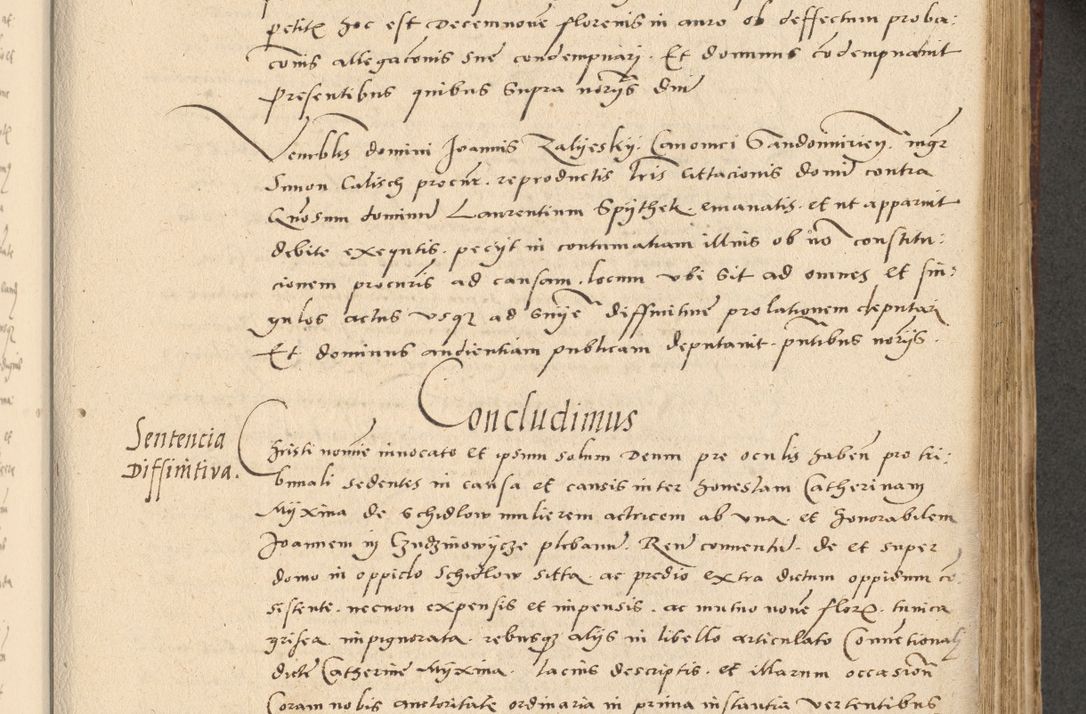 petite hoc est Decemnove florenis in auro ob deffectum proba:
cõnis allegacõnis sue condempnari. Et dominus cõdempnavit
Presentibus quibus supra notrijs Dni
Venerblis domini Joannis Zaliesky. Canonici Sandomirieñ. mgr
Simon Calisch procur. reproductis lris Cittacionis domi contra
Gñosum dominu Laurentium Spythek. emanatis. et ut apparuit
debite exequtis. pecyt in contumatiam illius ob nõ constitu:
cionem procuris ad causam. locum ubi sit ad omnes et sin:
gulos actus usque ad snije diffinitive prolationem deputari
Et dominus audientiam publicam deputavit. pñtibus norijs.
Concludimus
Sentencia
Diffinitiva.
Christi nomine innocato et ipsum solum Deum pre oculis habeñ pro tri:
bunali sedentes in causa et causis inter honestam Catherinam
Myxina de Schidlow mulierem actricem ab una. et honorabilem
Joannem in Czudzinowijcze plebanu. Reu conventu. de et super
domo in oppido Schidlow sitta. ac predio extra dictum oppidum cõ:
sistente. necnon expensis et impensis. ac mutuo nove florx. tunica
grisea impignorata. rebusque alijs in libello articulato Conventionali
dicte Catherine Myxina. lacius descriptis. et illarum occasioñ
Coram nobis auctoritate ordinaria in prima instantia vertentibus